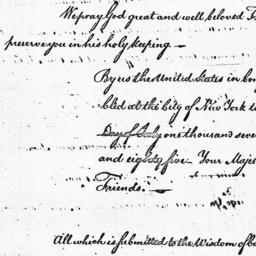 We pray God great and well beloved
preserve you in his holy keeping. —
By us the United States in
bled at the City of New York
Day of July one thousand seve
and eighty five — Your Maj
Friends. —
All which is submitted to the Wisdom of